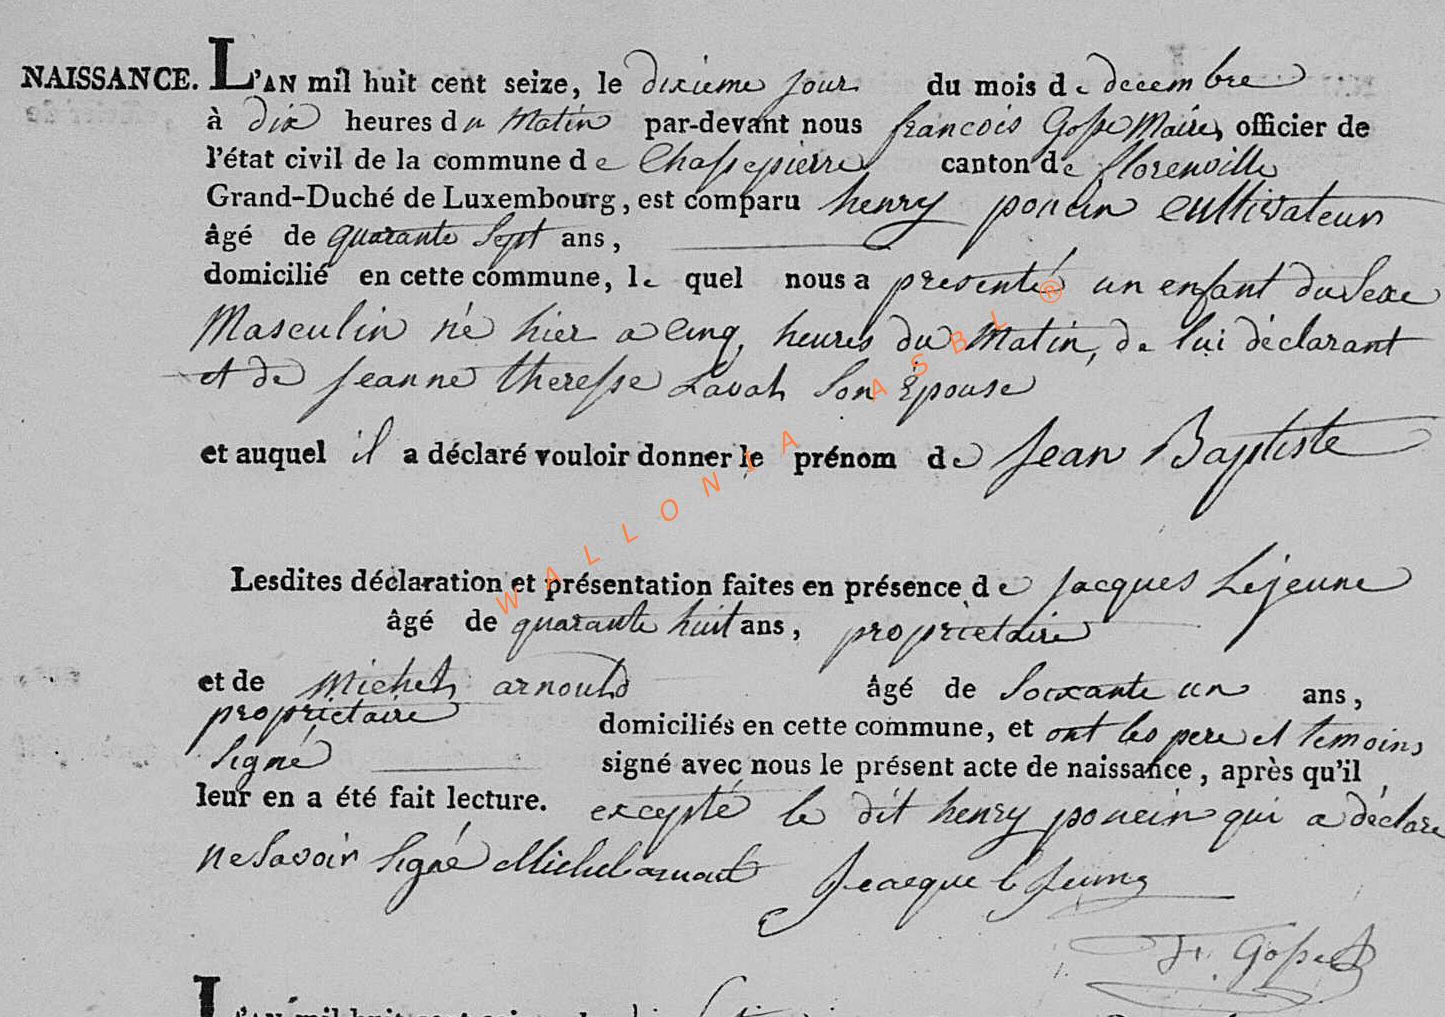 NAISSANCE. L'AN mil huit cent seize, le dixieme jour du mois de decembre
à dix heures du Matin par-devant nous francois Gosse Maire, officier de
l'état civil de la commune de Chassepierre canton de florenville
Grand-Duché de Luxembourg, est comparu henry poncin cultivateur
âgé de quarante Sept ans,
domicilié en cette commune, le quel nous a presenté un enfant du Sexe
Masculin né hier a Cinq heures du Matin, de lui déclarant
et de jeanne theresse Lavah Son Épouse
et auquel il a déclaré vouloir donner le prénom de Jean Baptiste
Lesdites déclaration et présentation faites en présence de jacques Lejeune
âgé de quarante huit ans, proprietaire
et de Michel arnould âgé de Soixante un ans,
proprietaire domiciliés en cette commune, et ont les pere et temoins
Signé signé avec nous le présent acte de naissance, après qu'il
leur en a été fait lecture. excepté le dit henry poncin qui a déclare
ne Savoir Signé Michel arnout Jeacque le Jeune
fr. Gosse
L'AN mil huit cent seize
WALLONIA ASBL ®